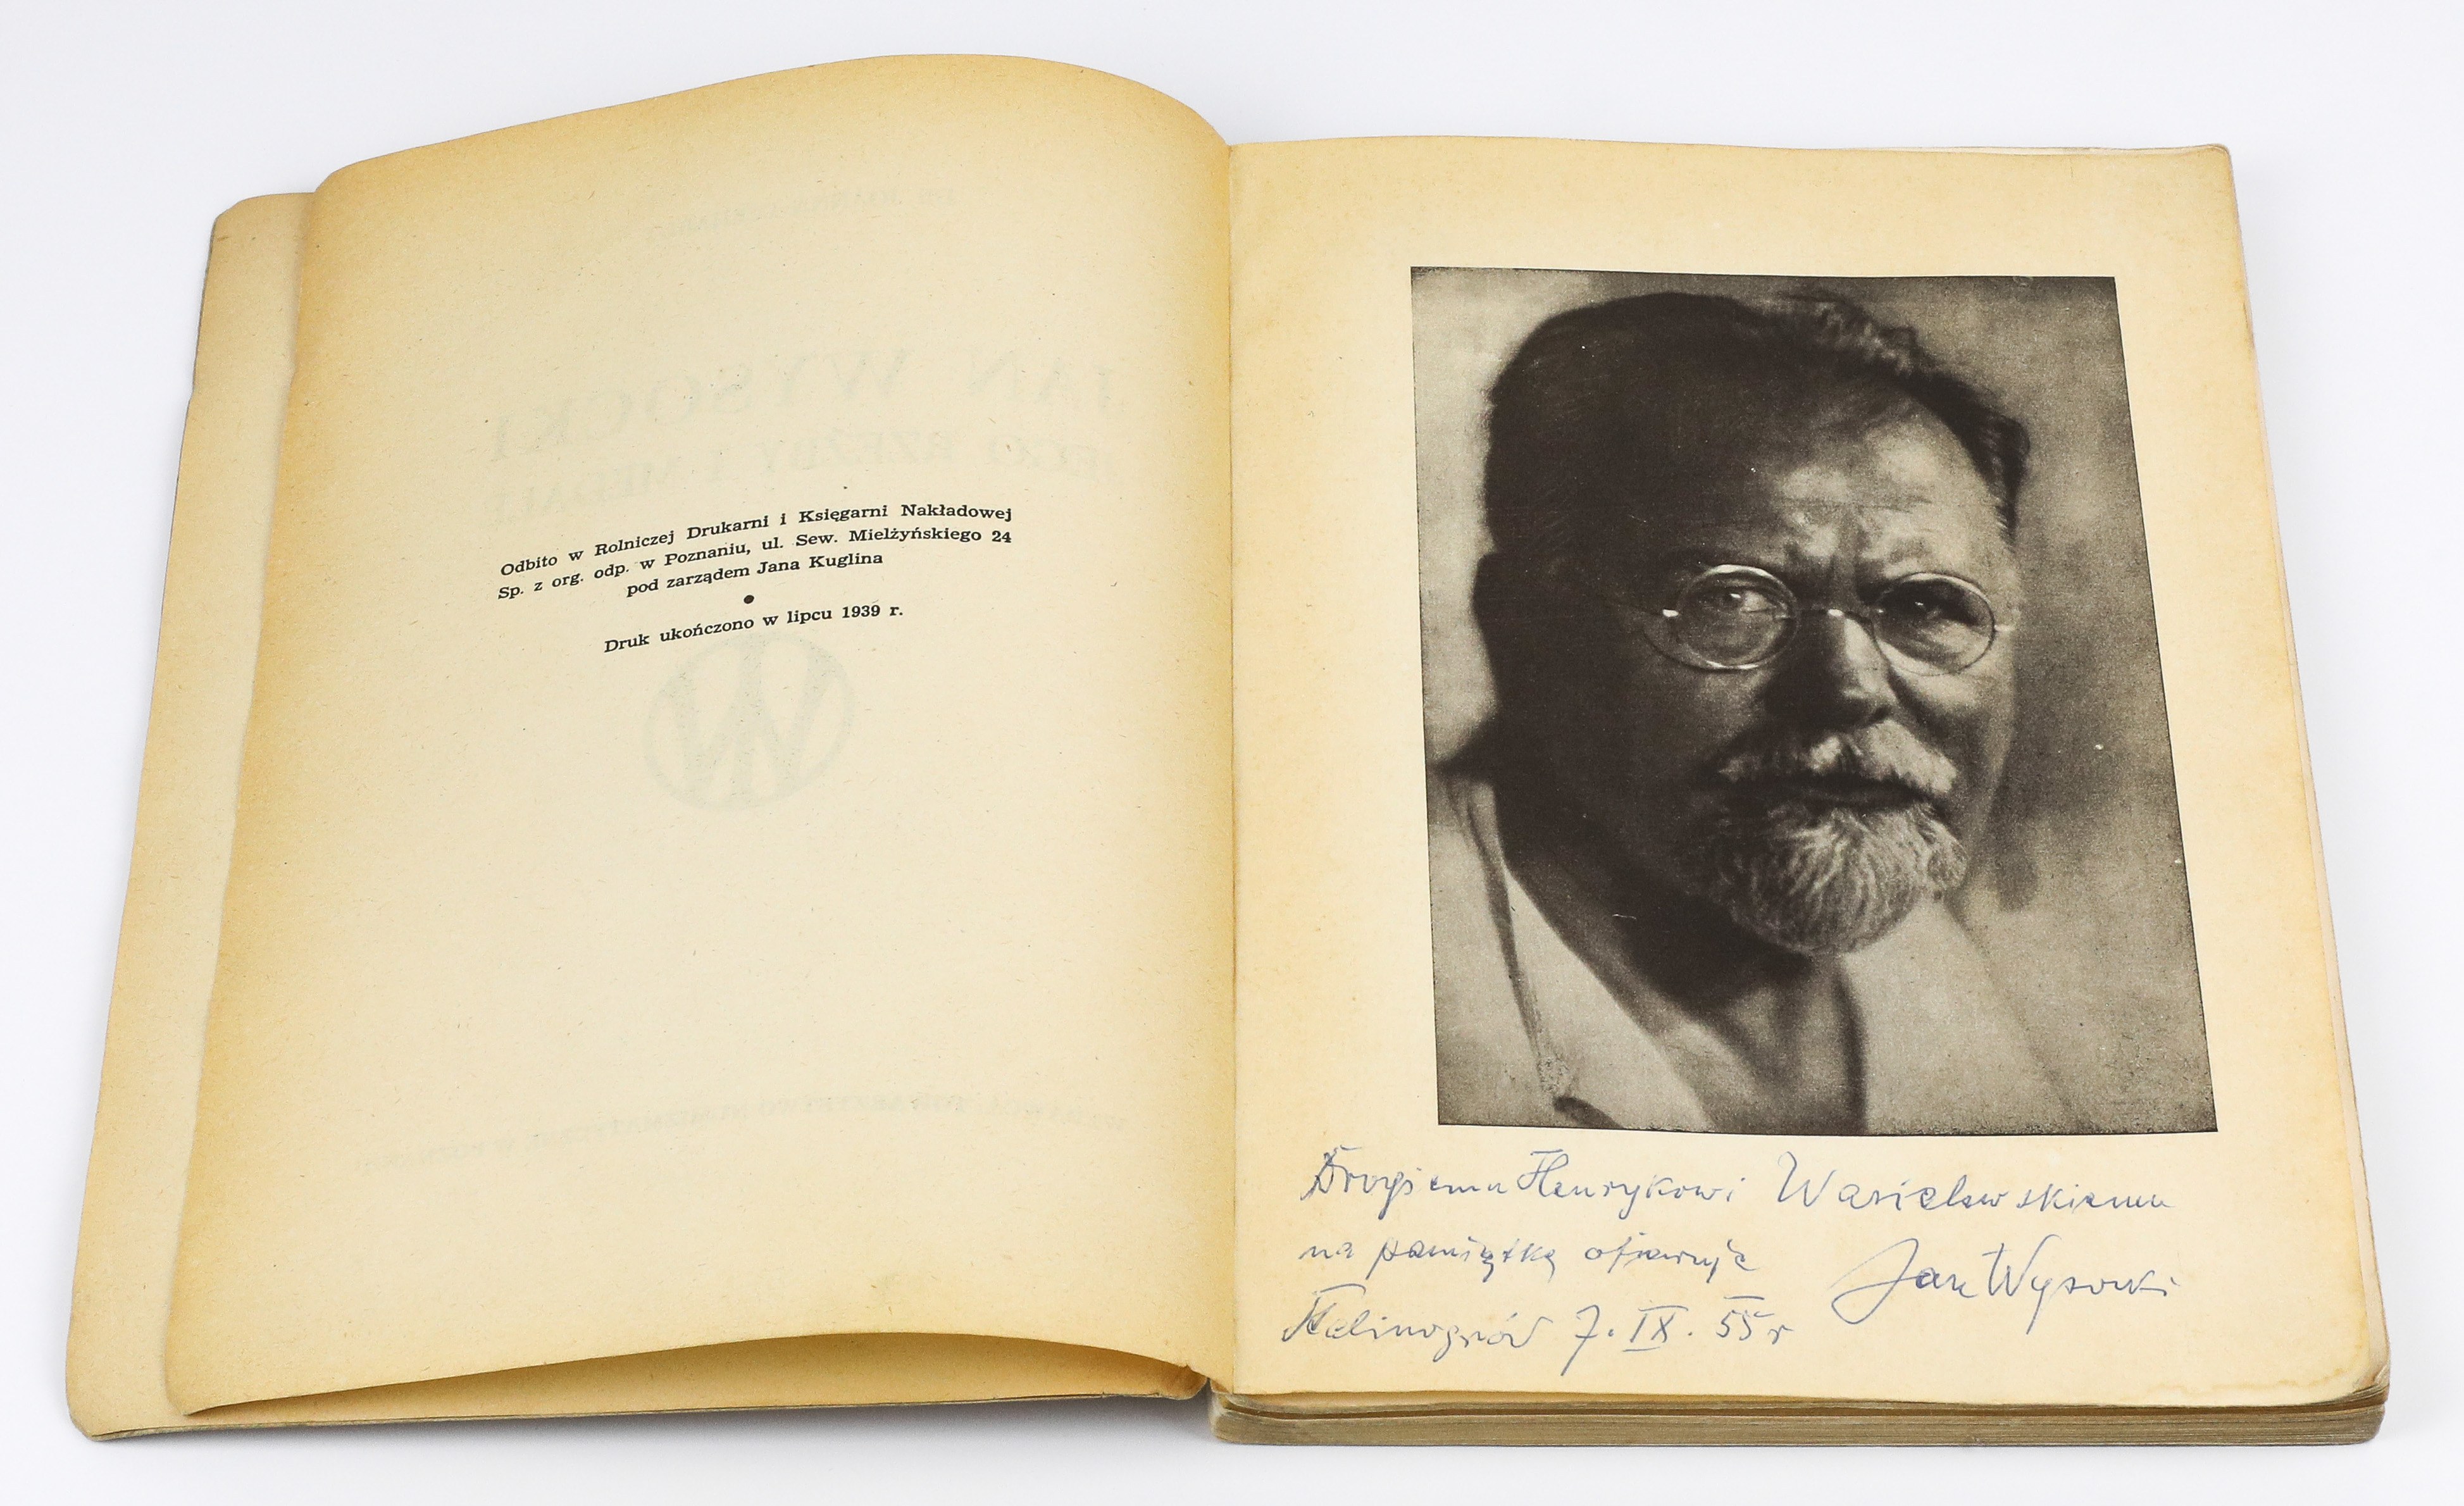 Odbito w Rolniczej Drukarni i Księgarni Nakładowej
Sp. z org. odp. w Poznaniu, ul. Sew. Mielżyńskiego 24
pod zarządem Jana Kuglina
•
Druk ukończono w lipcu 1939 r.
JAN WYSOCKI
JEGO RZEŹBY I MEDALE
Drogiemu Henrykowi Wasielewskiemu
na pamiątkę ofiaruję
Jan Wysocki
Stalinogród 7. IX. 55 r